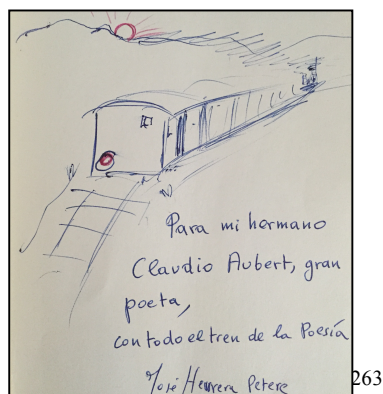 Para mi hermano
Claudio Aubert, gran
poeta,
con todo el tren de la Poesía
José Herrera Petere
263